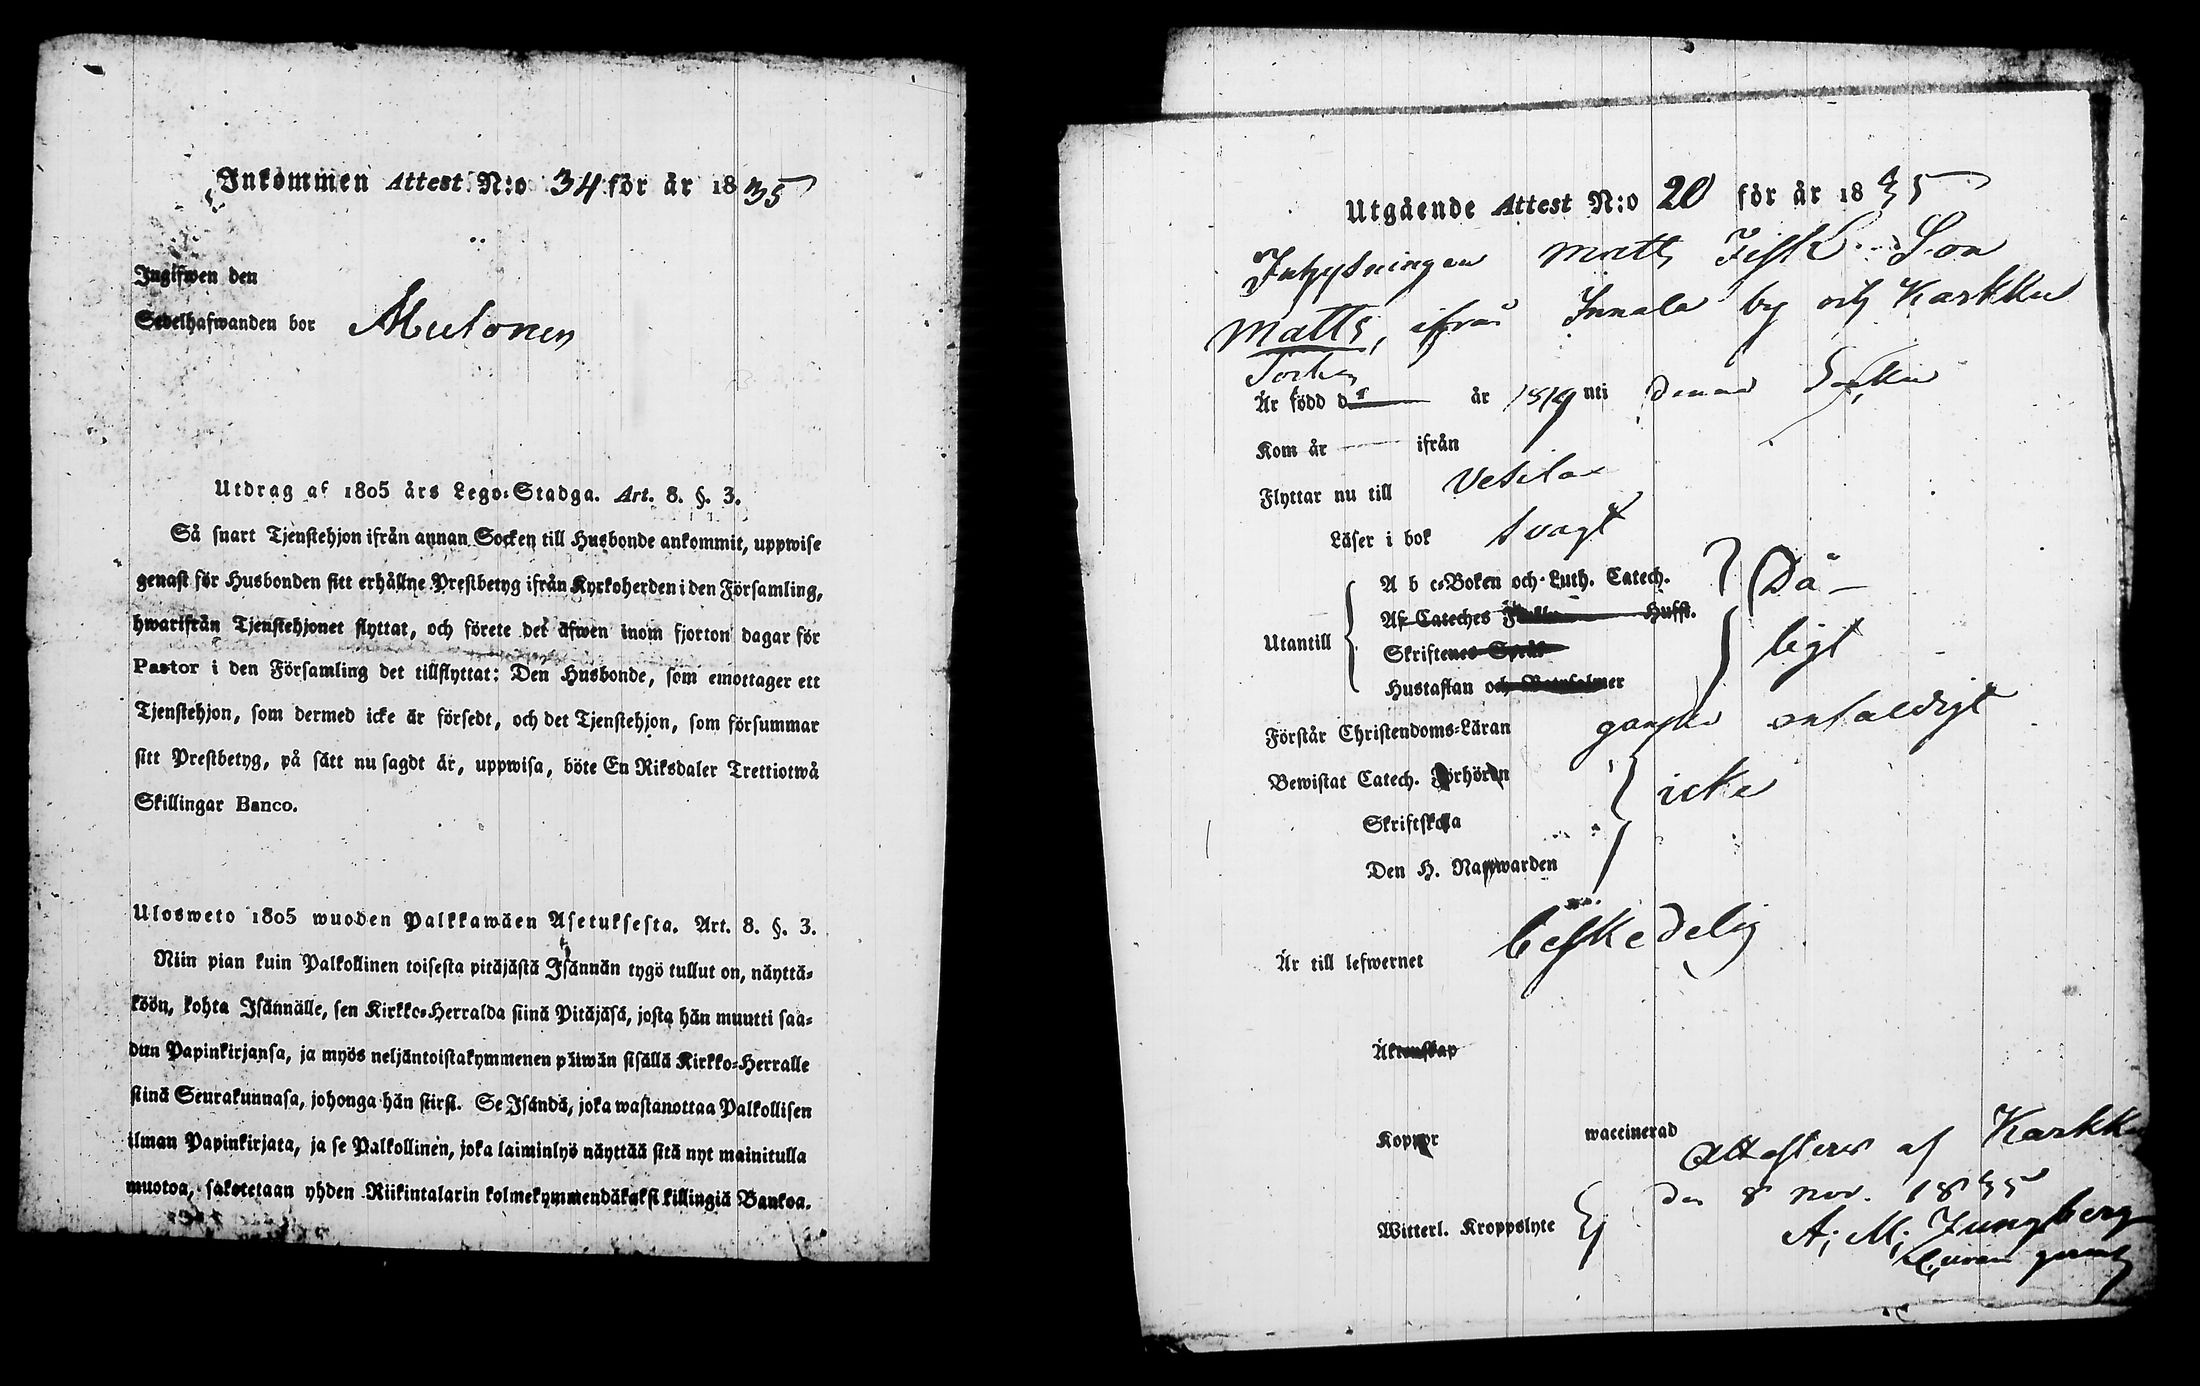 Inkommen Attest N:o 34 för år 1835
Ingifwen den
Sedelhafwanden bor Mutonen
Utdrag af 1805 års Lego-Stadga. Art. 8. §. 3.
Så snart Tjenstehjon ifrån annan Socken till Husbonde ankommit, uppwise
genast för Husbonden sitt erhållne Prestbetyg ifrån Kyrkoherden i den Församling,
hwarifrån Tjenstehjonet flyttat, och förete det äfwen inom fjorton dagar för
Pastor i den Församling det tillflyttat: Den Husbonde, som emottager ett
Tjenstehjon, som dermed icke är försedt, och det Tjenstehjon, som försummar
sitt Prestbetyg, på sätt nu sagdt är, uppwisa, böte En Riksdaler Trettiotwå
Skillingar Banco.
Ulosweto 1805 wuoden Palkkawäen Asetuksesta. Art. 8. §. 3.
Niin pian kuin Palkollinen toisesta pitäjästä Isännän tygö tullut on, näyttä-
köön, kohta Isännälle, sen Kirkko-Herralda siinä Pitäjäsä, josta hän muutti saa-
dun Papinkirjansa, ja myös neljäntoistakymmenen päiwän sisällä Kirkko-Herralle
siinä Seurakunnasa, johonga hän siirsi. Se Isändä, joka wastanottaa Palkollisen
ilman Papinkirjata, ja se Palkollinen, joka laiminlyö näyttää sitä nyt mainitulla
muotoa, sakotetaan yhden Riikintalarin kolmekymmendäkaksi killingiä Bankoa.
Utgående Attest N:o 20 för år 1835
Inhysningen Matts Son
Matts, ifrån Innala by och Karkku
Socken
Är född d är 1819 uti denna Socken
Kom år ifrån
Flyttar nu till Vesilax
Läser i bok svagt
Utantill
A b c-Boken och Luth. Catech.
Af Cateches Hufst.
Skriftenes Språk
Hustaflan och Botpsalmer
Då-
ligt
Förstår Christendoms-Läran ganska enfaldigt
Bewistat Catech. Förhören
Skriftskola
Den H. Nattwarden
icke
Är till lefwernet beskedelig
Äktenskap
Koppor waccinerad
Witterl. Kroppslyte Ej
Attesteras af Karkku
den 8 Nov. 1835
A. M. Ljungberg